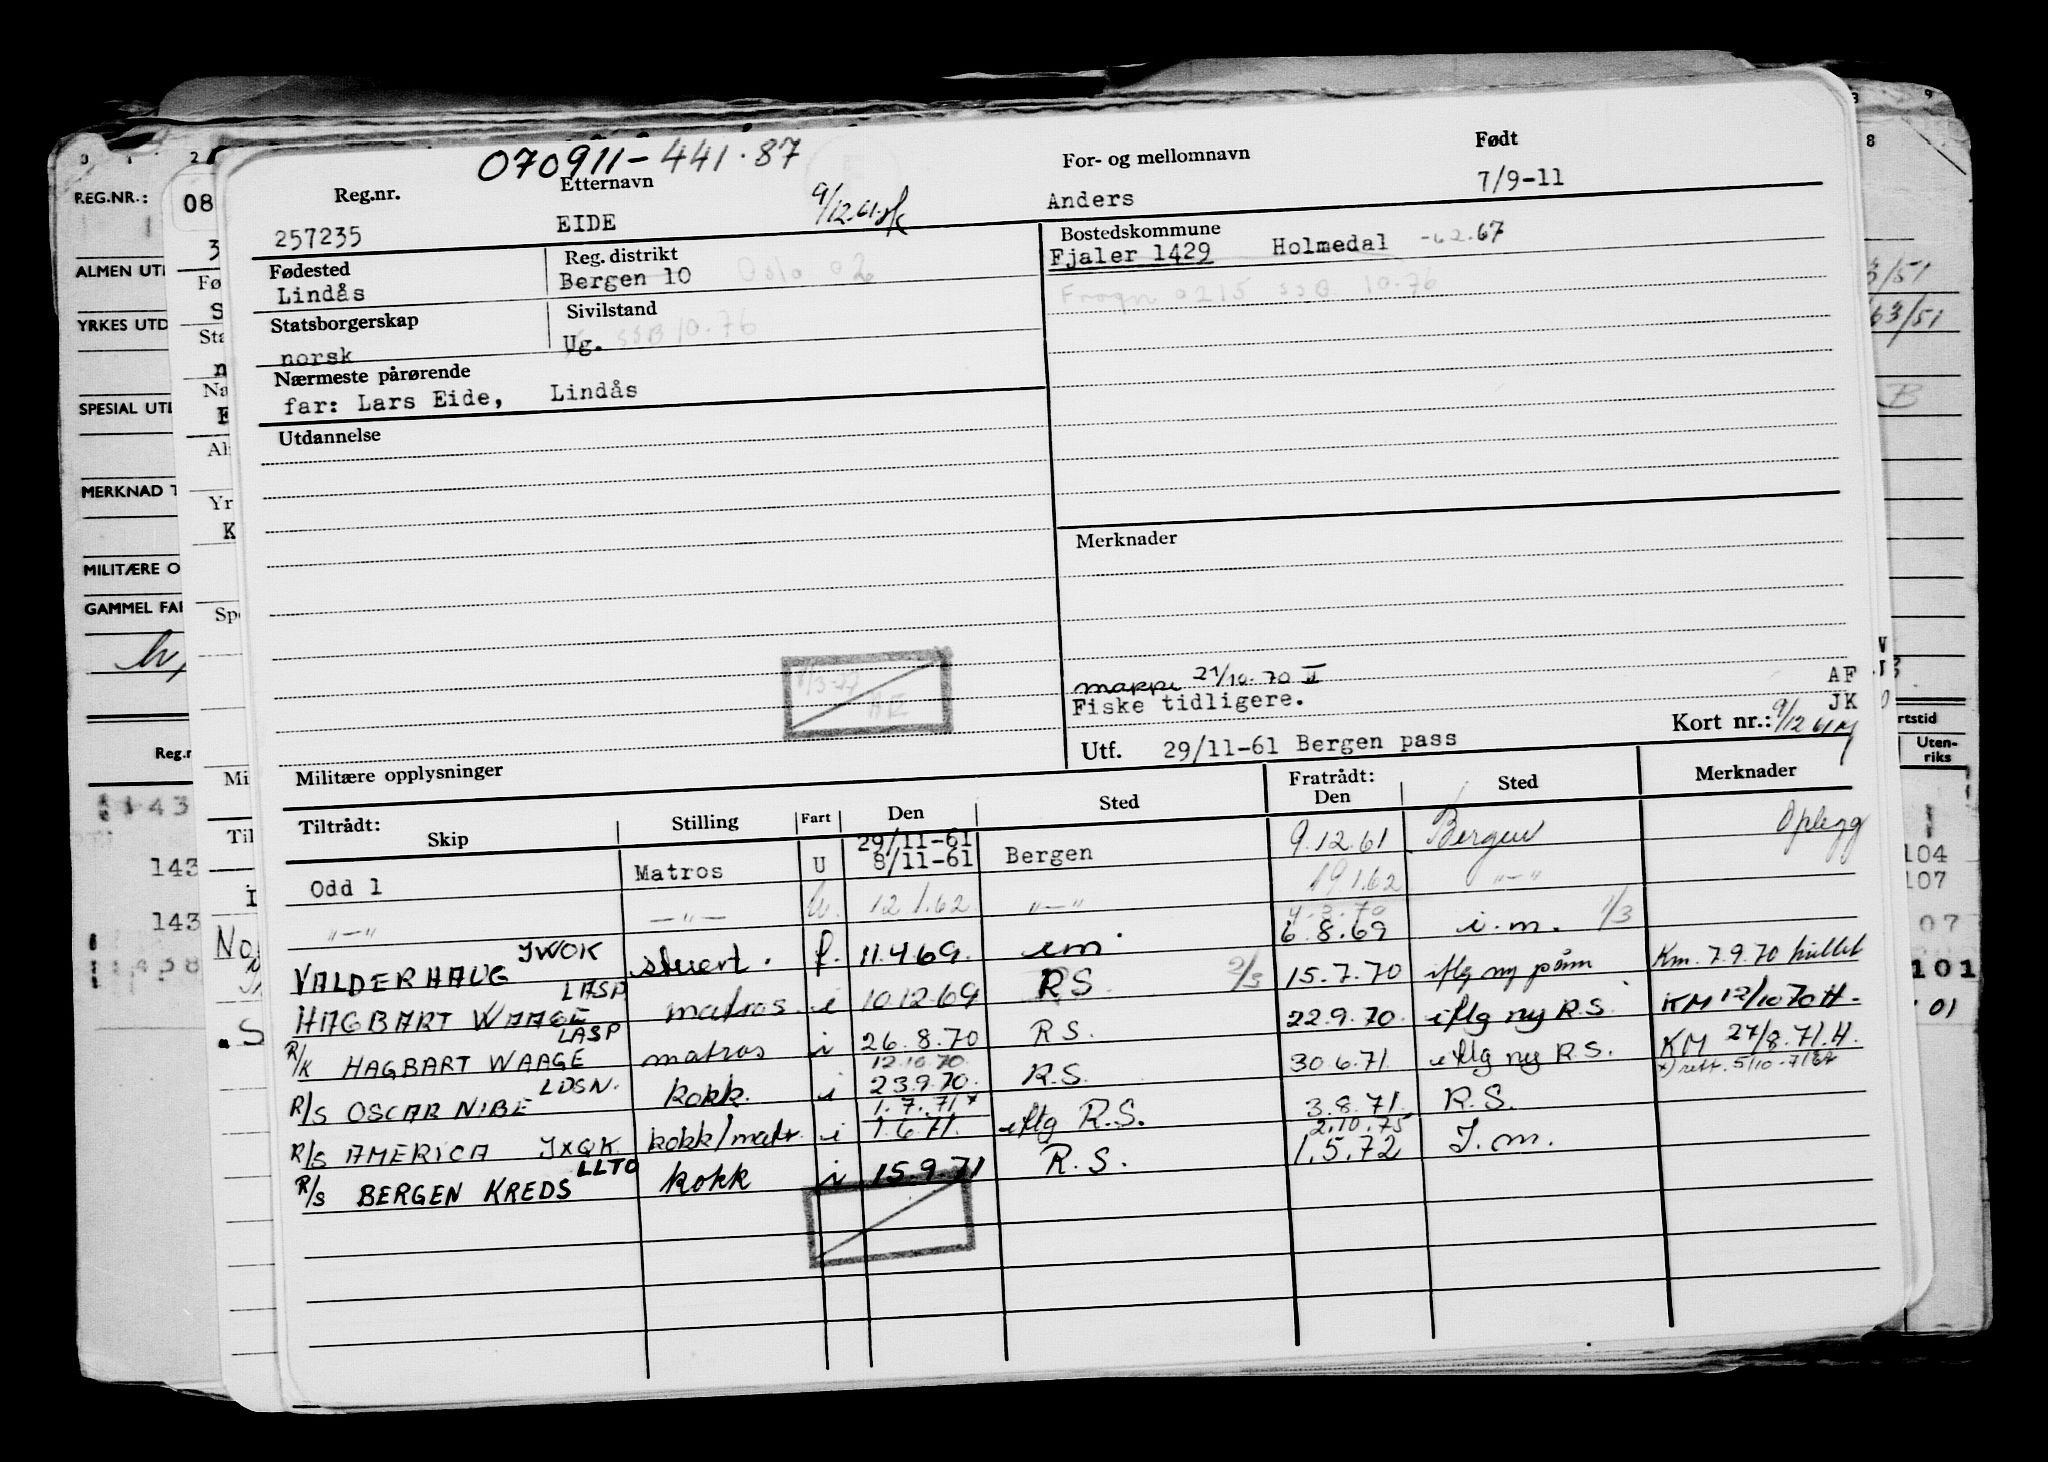 070911-441.87
Reg.nr. Etternavn For- og mellomnavn Født
257235 EIDE 9/12.61 Anders 7/9-11
Fødested Reg. distrikt Bostedskommune
Lindås Bergen 10 Oslo 02 Fjaler 1429 Holmedal -62.67
Frogn 0215 SSB 10.76
Statsborgerskap Sivilstand
norsk Ug. SSB 10.76
Nærmeste pårørende
far: Lars Eide, Lindås
Utdannelse
Merknader
mappe 21/10.70 II
Fiske tidligere.
AF
JK
Kort nr.: 9/12 61
Utf. 29/11-61 Bergen pass
Militære opplysninger
Tiltrådt: Fratrådt:
Skip Stilling Fart Den Sted Den Sted Merknader
29/11-61
Odd 1 Matros U 8/11-61 Bergen 9.12.61 Bergen Oplegg
—"— —"— U. 12.1.62 —"— 19.1.62 —"—
4.3.70
VALDERHAUG JWOK stuert. f. 11.4.69. im 6.8.69 i.m. 1/3
HAGBART WAAGE LASP matros. i 10.12.69 RS 2/3 15.7.70 iflg ny Km. 7.9.70 hullet
R/K HAGBART WAAGE LASP matros i 26.8.70 R S. 22.9.70. iflg ny R.S. KM 12/10 70 H.
12.10.70
R/S OSCAR NIBE LDSN. kokk. i 23.9.70. R.S. 30.6.71. iflg ny R.S. KM 27/8.71.H.
x) rett. 5/10-71
1.7.71 x
R/S AMERICA JXQK. kokk/matr. i 1.6.71. iflg R.S. 3.8.71. R.S.
2.10.75
R/S BERGEN KREDS LLTO kokk i 15.9.71 R.S. 1.5.72 I.m.
REG.NR.:
08
ALMEN UT
YRKES UTD
SPESIAL UT
MERKNAD T
MILITÆRE O
GAMMEL FA
Reg.n
143
143
Uten-
riks
104
107
07
101
01